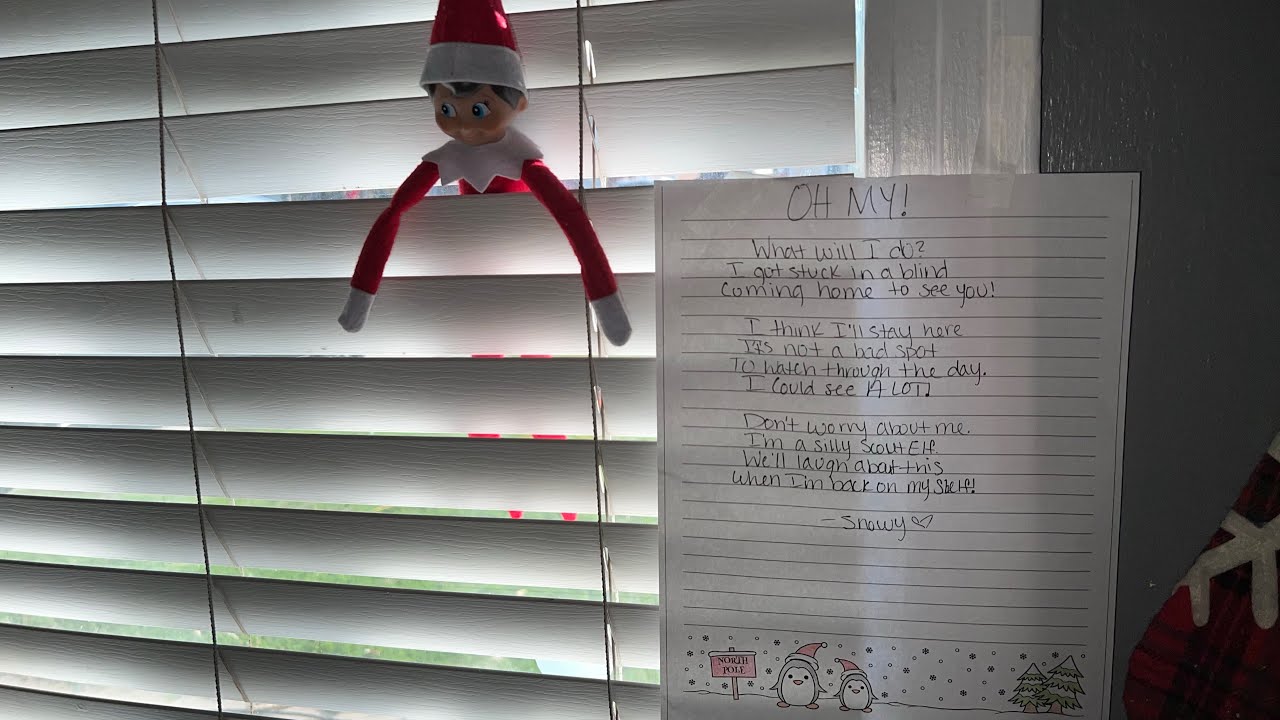 OH MY!
What will I do?
I got stuck in a blind
Coming home to see you!
I think I'll stay here
It's not a bad spot
To watch through the day.
I could see A LOT!
Don't worry about me.
I'm a silly Scout Elf.
We'll laugh about this
When I'm back on my shelf!
- Snowy ♡
NORTH
POLE